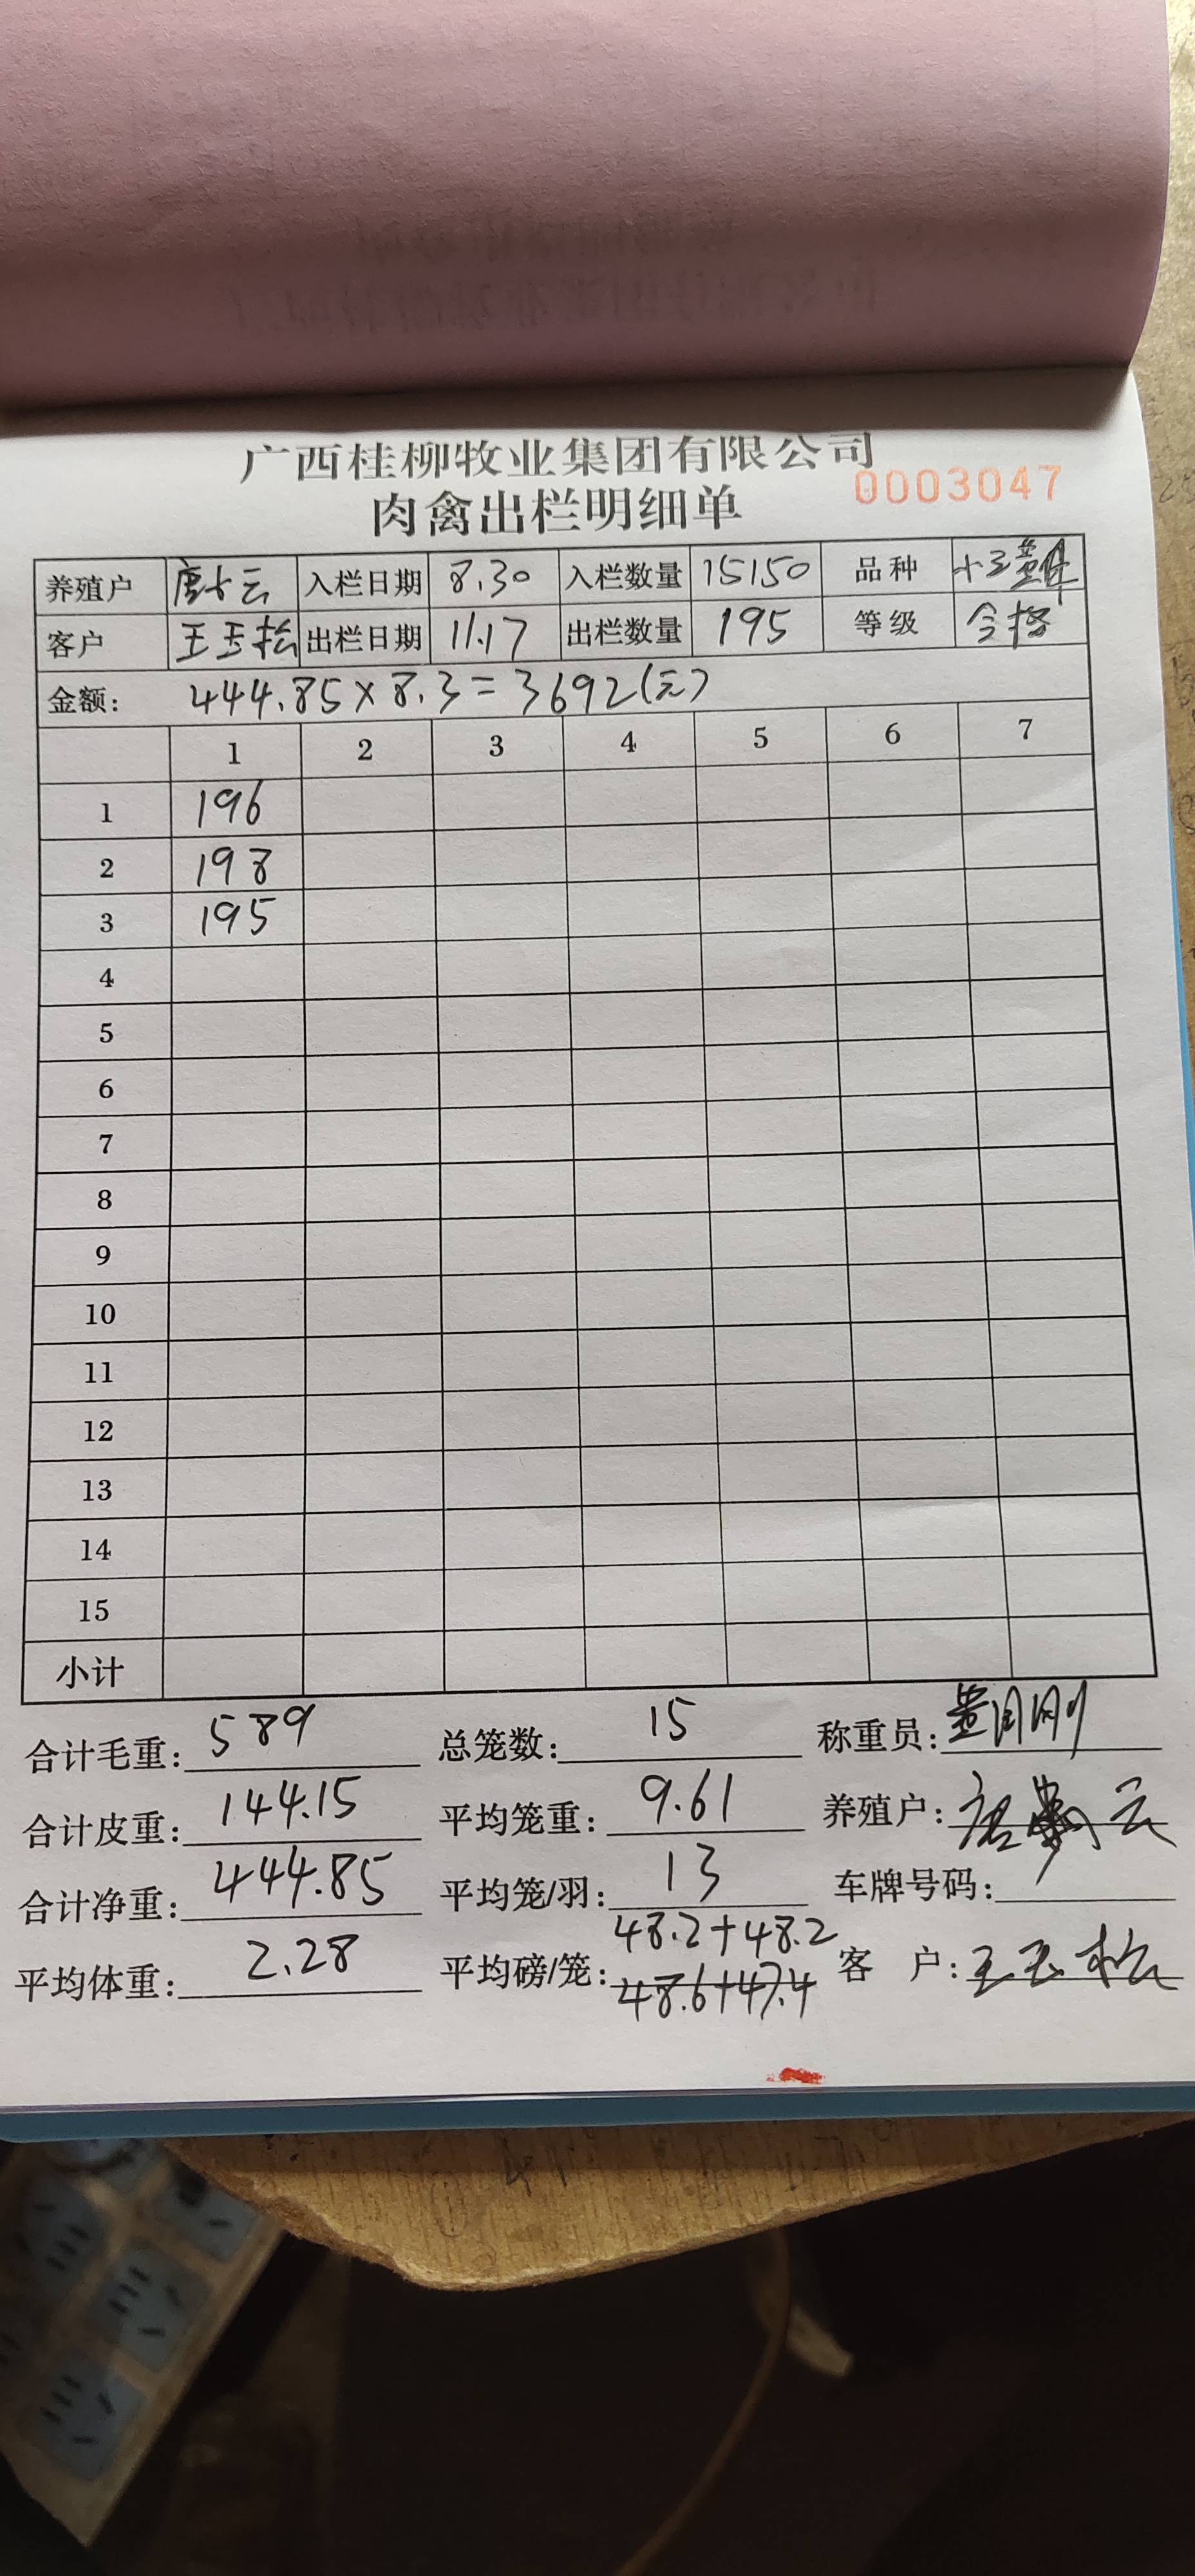 广西桂柳牧业集团有限公司
肉禽出栏明细单 0003047
养殖户 唐 云 入栏日期 8.30 入栏数量 15150 品种
客户 王玉松 出栏日期 11.17 出栏数量 195 等级 合格
金额: 444.85×8.3=3692(元)
1 2 3 4 5 6 7
1 196
2 198
3 195
4
5
6
7
8
9
10
11
12
13
14
15
小计
合计毛重: 589 总笼数: 15 称重员:
合计皮重: 144.15 平均笼重: 9.61 养殖户: 唐 云
合计净重: 444.85 平均笼/羽: 13 车牌号码:
平均体重: 2.28 平均磅/笼: 48.2+48.2 客 户: 王玉松
48.6+47.4